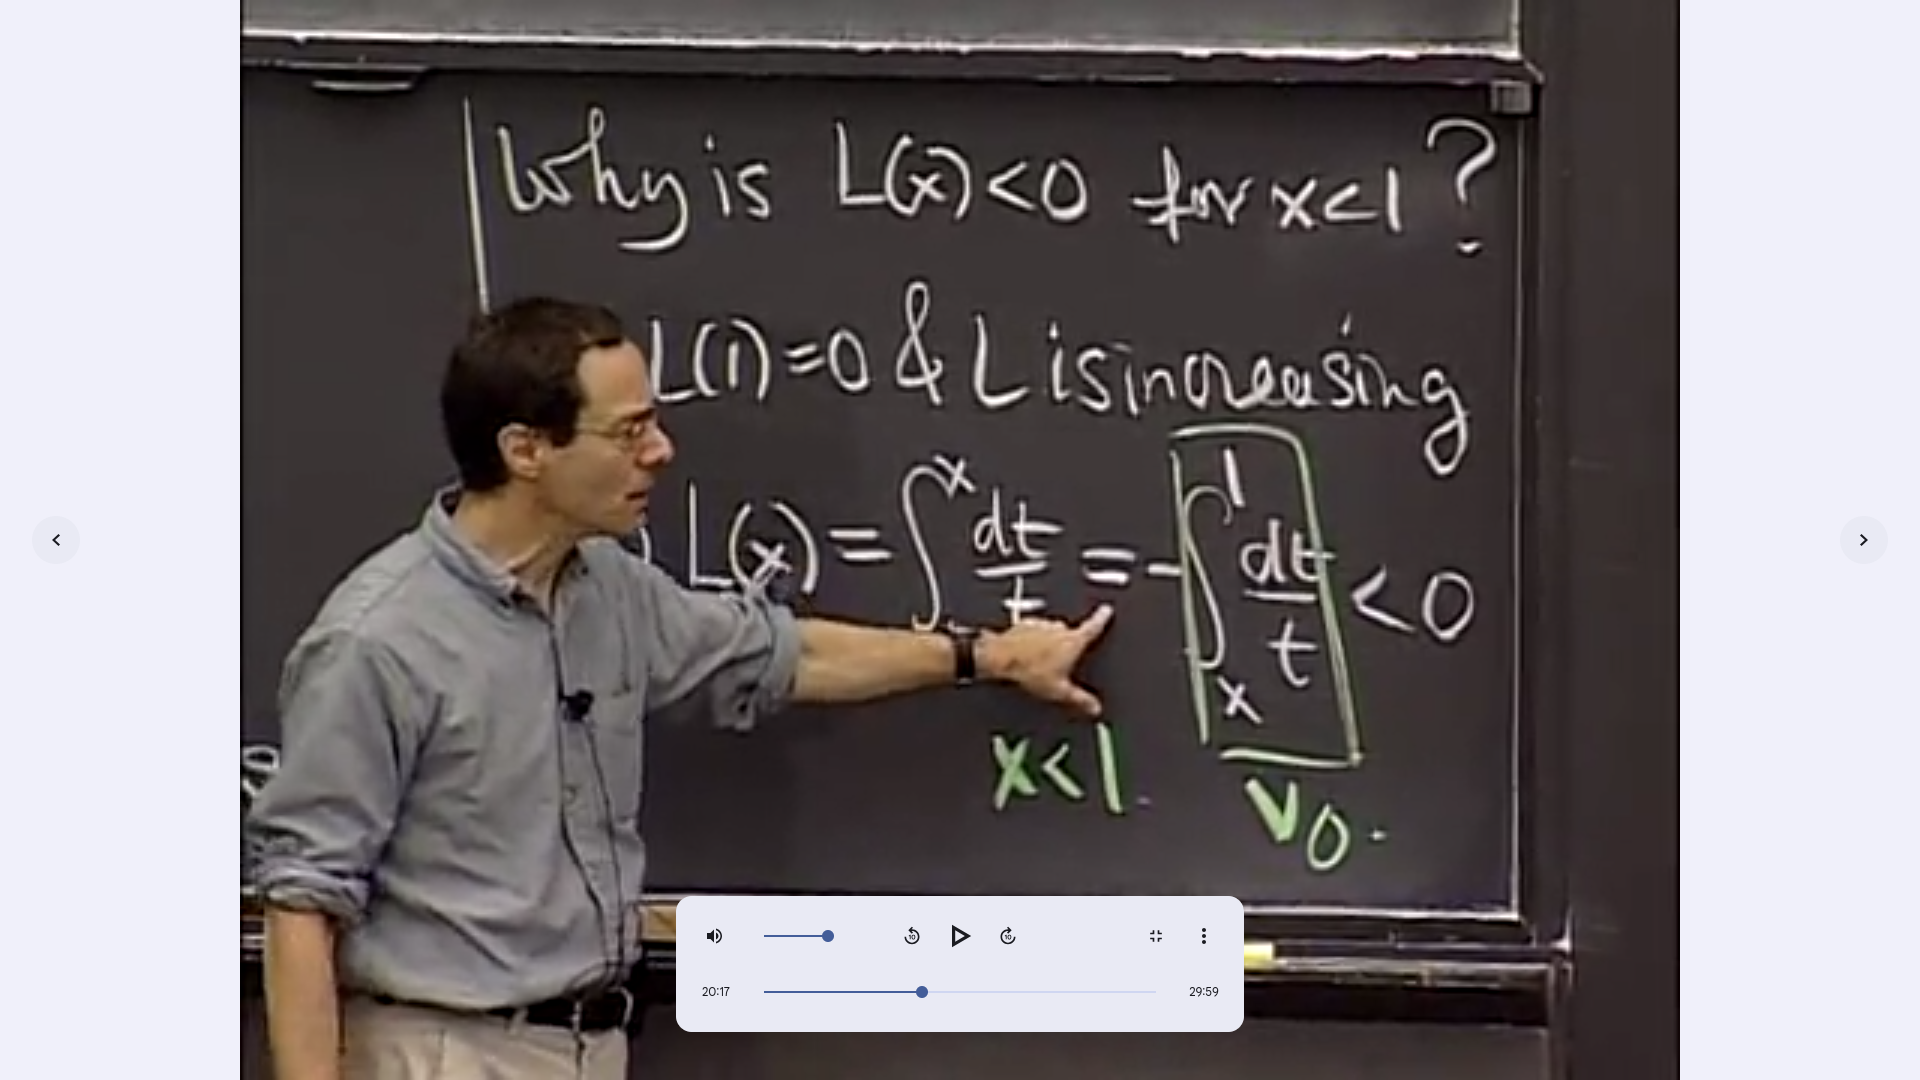 Why is L(x) < 0 for x < 1 ?
L(1) = 0 & L is increasing
) L(x) = ∫ˣ dt/t = - ∫ₓ¹ dt/t < 0
x < 1
∨ 0
20:17
29:59